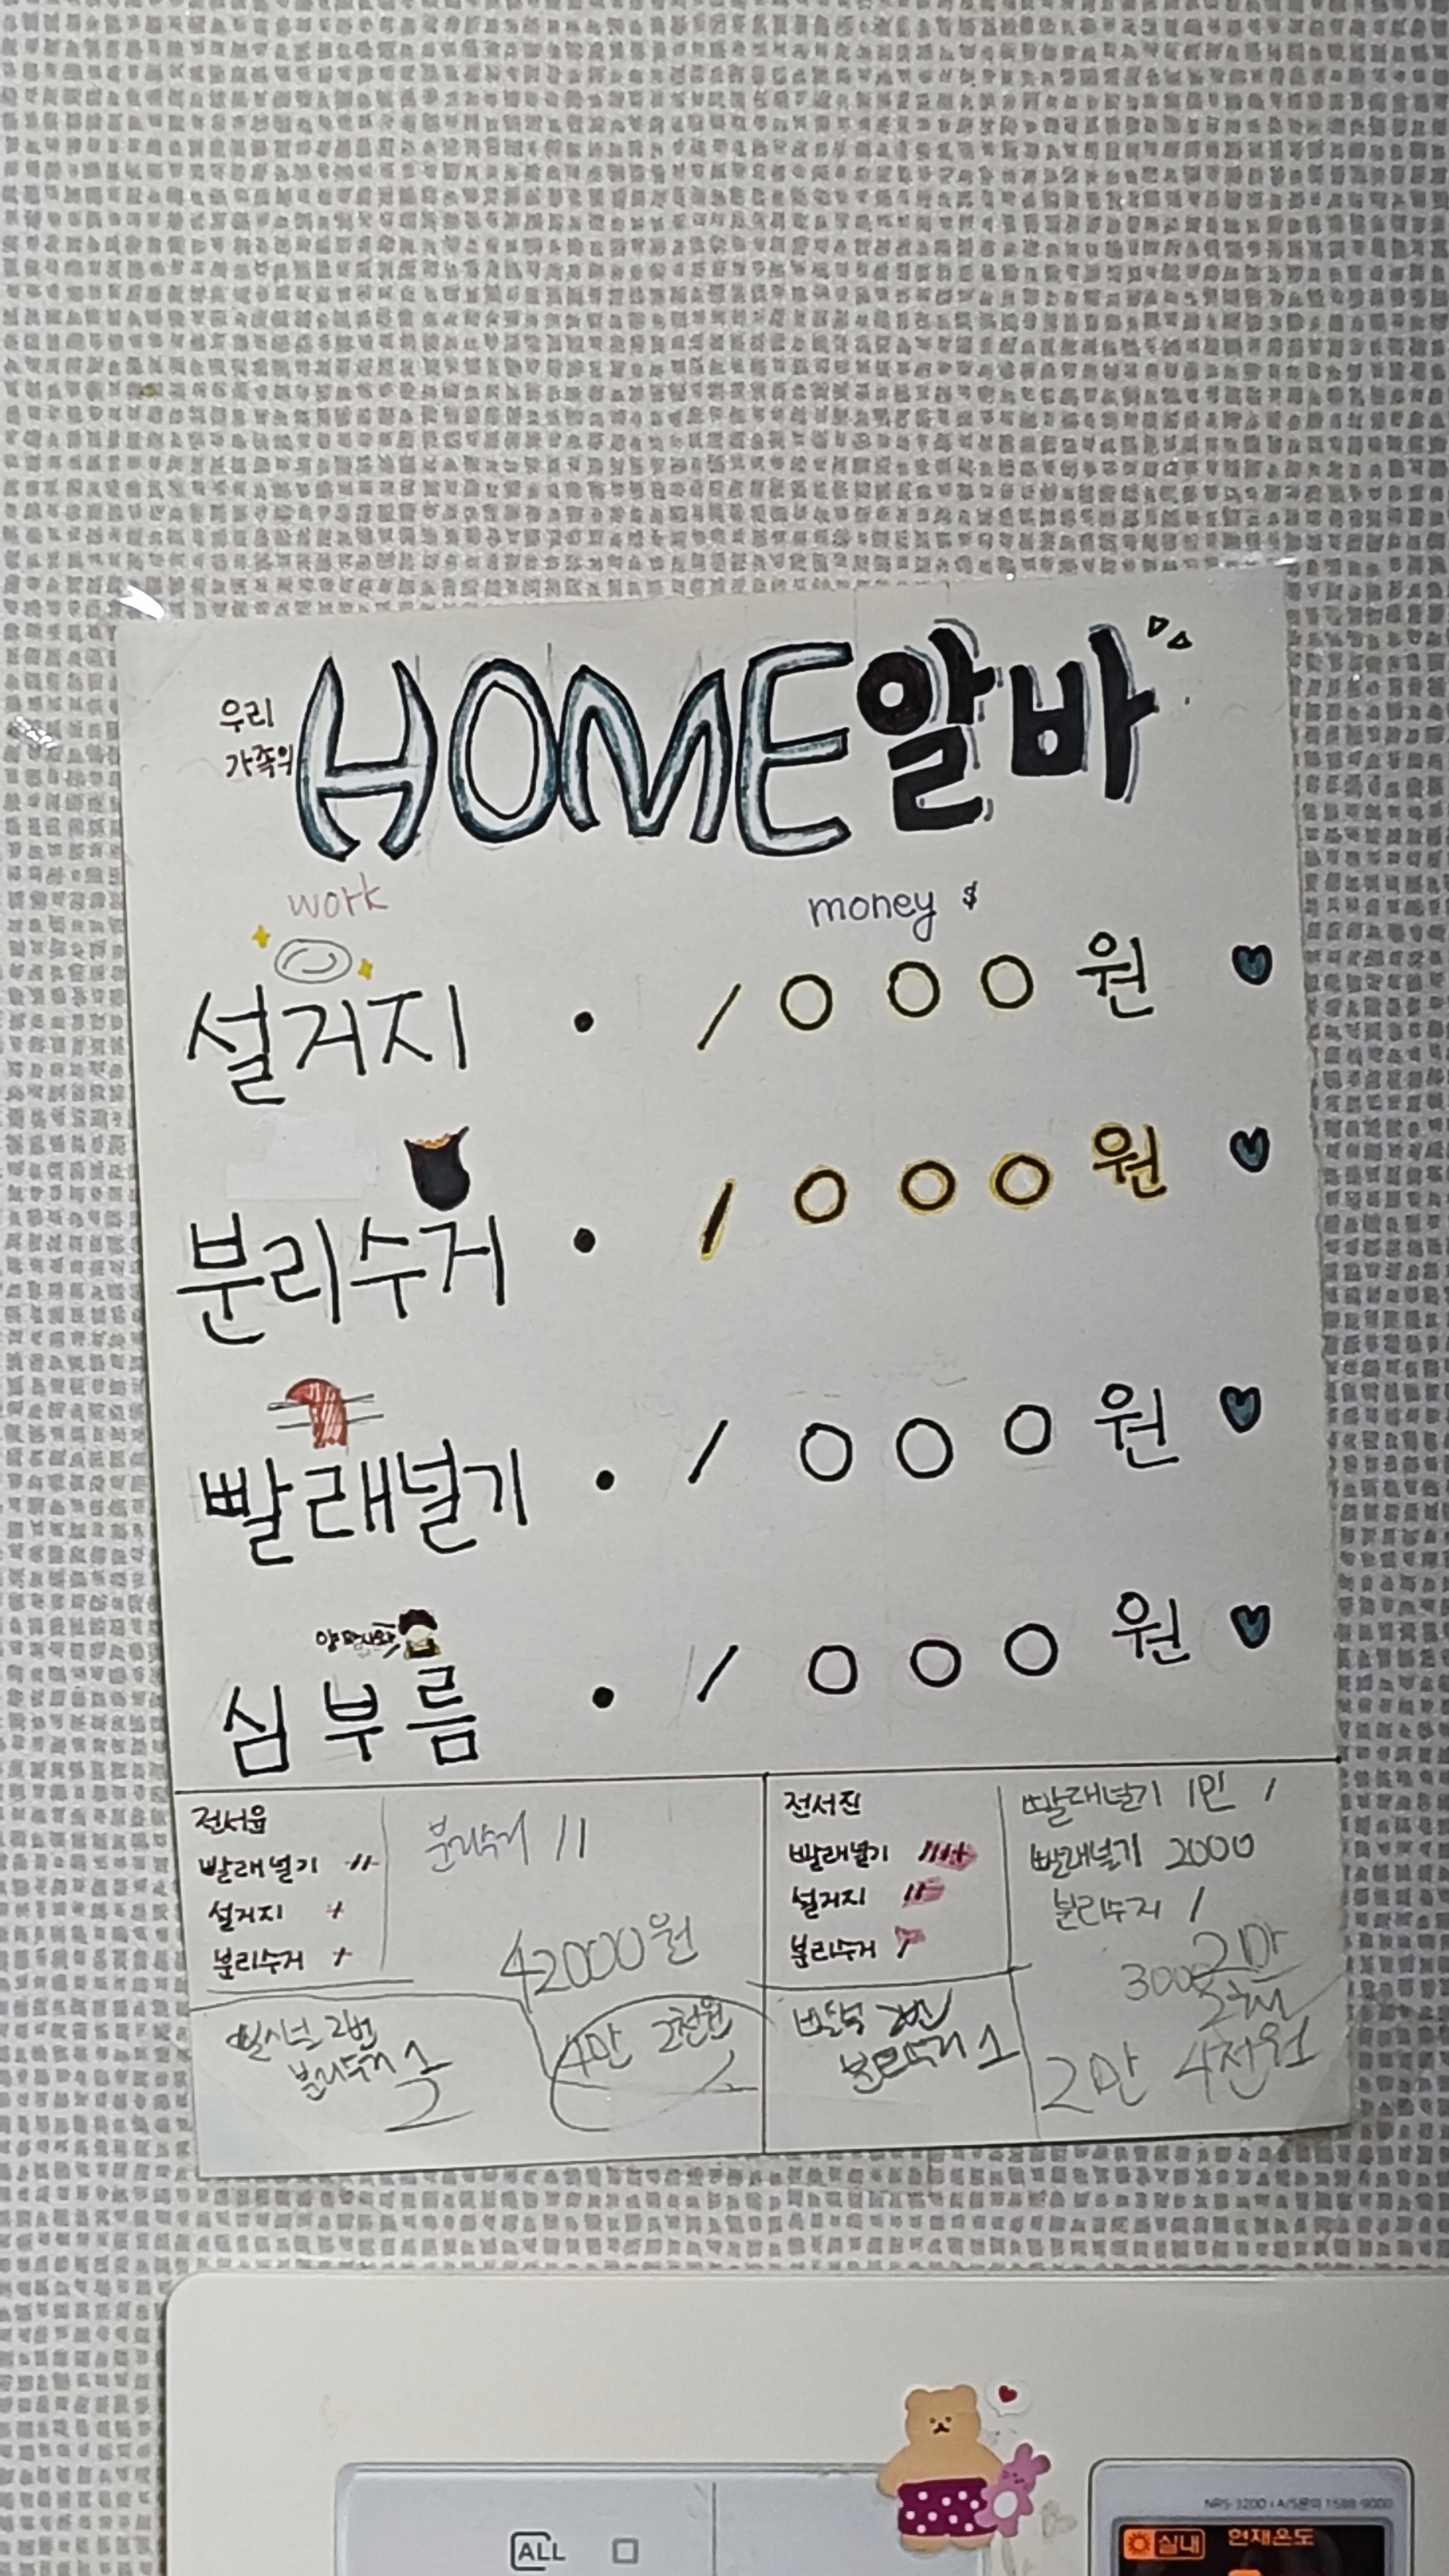 우리
가족의
HOME알바
work
money $
설거지 · 1000원
분리수거 · 1000원
빨래널기 · 1000원
심부름 · 1000원
전서윤
빨래널기
설거지
분리수거
분리수거 11
42000원
2번
분리수거 1
2
4만 2천원
전서진
빨래널기
설거지
분리수거
빨래널기 1번 1
빨래널기 2000
분리수거 1
3000
2만
2번
분리수거 1
2만 4천원
ALL
NRS-3200 A/S문의 1588-9000
실내 현재온도